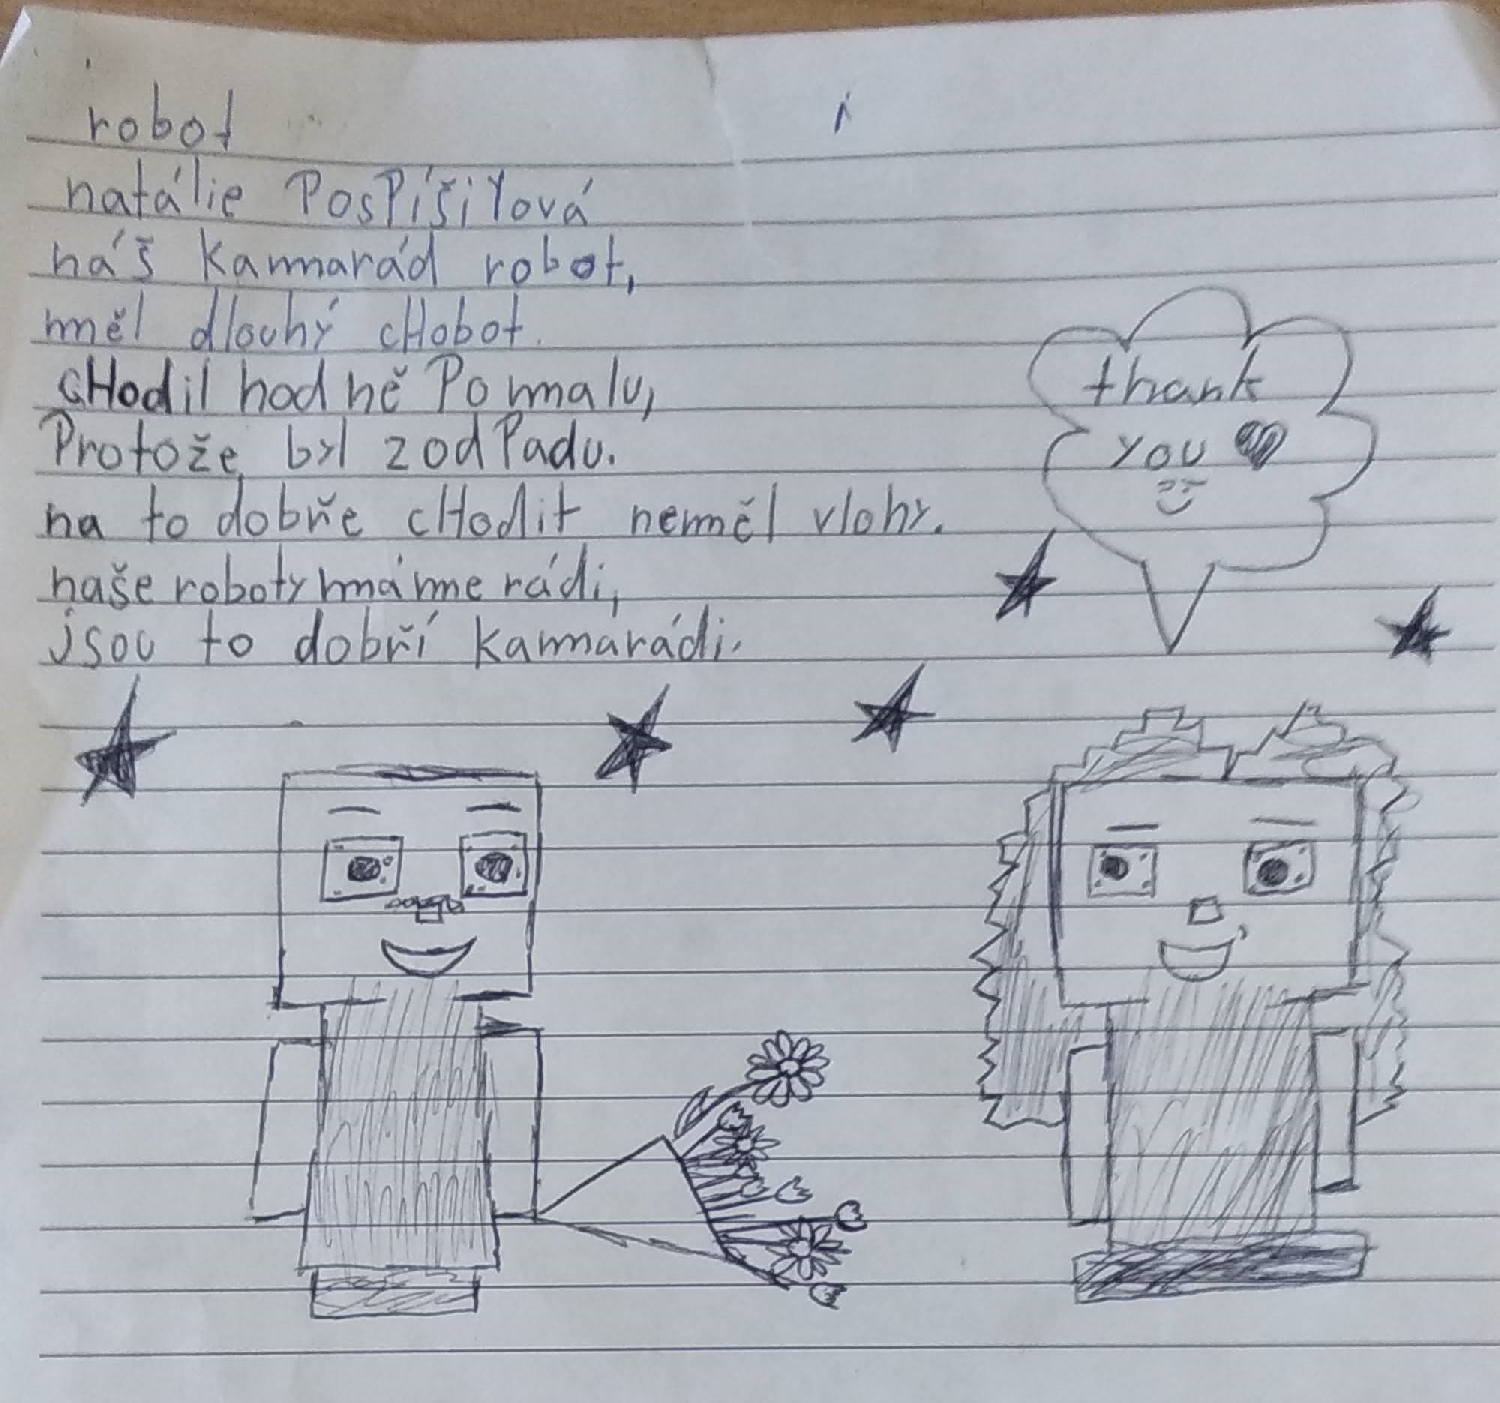 robot
natálie PosPíšilová
náš kamarád robot,
měl dlouhý cHobot.
cHodil hodně Pomalu,
Protože byl z odPadu.
na to dobře cHodit neměl vlohy.
naše roboty máme rádi,
jsou to dobří kamarádi.
thank
you